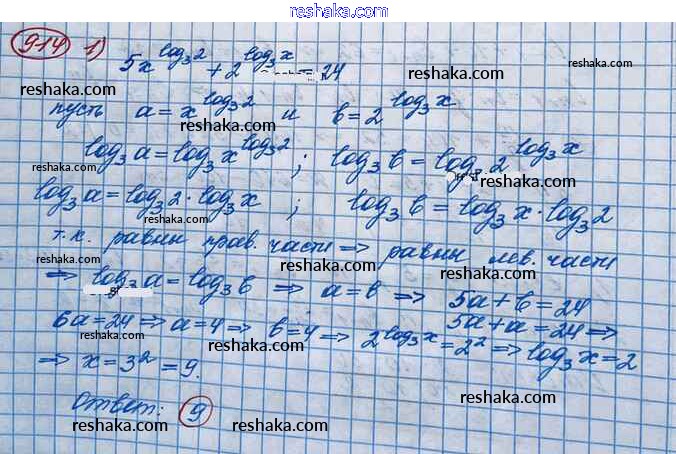 reshaka.com
914 1) 5x^{log₃2} + 2^{log₃x} = 24
reshaka.com reshaka.com reshaka.com
пусть a = x^{log₃2} и b = 2^{log₃x}
reshaka.com reshaka.com
log₃a = log₃x^{log₃2} ; log₃b = log₃2^{log₃x}
reshaka.com reshaka.com
log₃a = log₃2 · log₃x ; log₃b = log₃x · log₃2
reshaka.com reshaka.com
т.к. равны прав. части ⇒ равны лев. части
reshaka.com reshaka.com reshaka.com
⇒ log₃a = log₃b ⇒ a = b ⇒ 5a + b = 24
5a + a = 24 ⇒
6a = 24 ⇒ a = 4 ⇒ b = 4 ⇒ 2^{log₃x} = 2² ⇒ log₃x = 2
reshaka.com reshaka.com reshaka.com
⇒ x = 3² = 9.
reshaka.com reshaka.com
Ответ: 9
reshaka.com reshaka.com reshaka.com